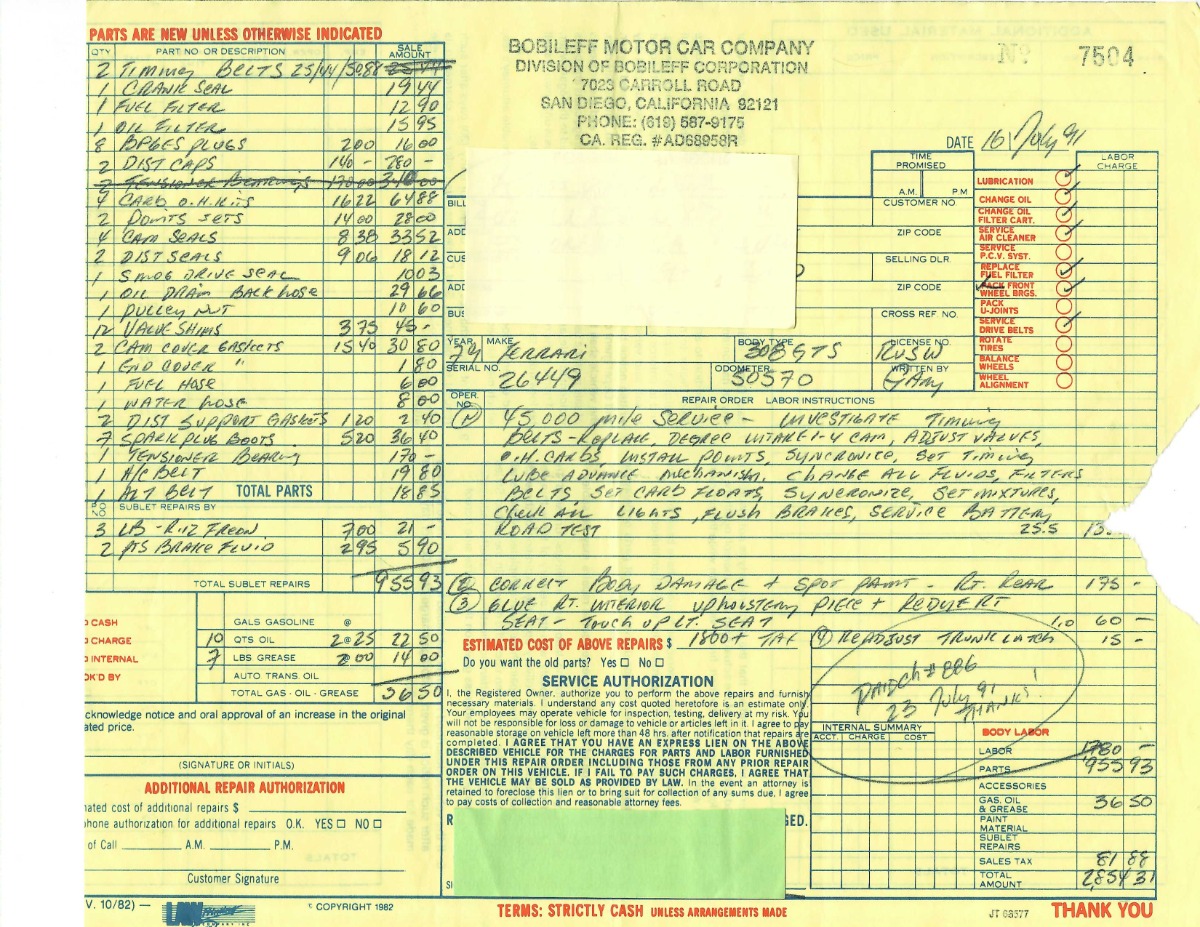 PARTS ARE NEW UNLESS OTHERWISE INDICATED
QTY PART NO OR DESCRIPTION SALE AMOUNT
2 TIMING BELTS 25/44/50.88
1 CRANK SEAL 19 44
1 FUEL FILTER 12 90
1 OIL FILTER 15 95
8 BP6ES PLUGS 2 00 16 00
2 DIST CAPS 140 - 280 -
2 TENSIONER BEARINGS 170 00 340 00
4 CARB O.H. KITS 16 22 64 88
2 POINTS SETS 14 00 28 00
4 CAM SEALS 8 38 33 52
2 DIST SEALS 9 06 18 12
1 SMOG DRIVE SEAL 10 03
1 OIL DRAIN BACK HOSE 29 66
1 PULLEY NUT 10 60
12 VALVE SHIMS 3 75 45 -
2 CAM COVER GASKETS 15 40 30 80
1 END COVER " 1 80
1 FUEL HOSE 6 00
1 WATER HOSE 8 00
2 DIST SUPPORT GASKETS 1 20 2 40
7 SPARK PLUG BOOTS 5 20 36 40
1 TENSIONER BEARING 170 -
1 A/C BELT 19 80
1 ALT BELT TOTAL PARTS 18 85
SUBLET REPAIRS BY
3 LB - R-12 FREON 7 00 21 -
2 PTS BRAKE FLUID 2 95 5 90
TOTAL SUBLET REPAIRS 955 93
CASH
CHARGE
INTERNAL
OK'D BY
GALS GASOLINE @
10 QTS OIL 2 @ 25 22 50
7 LBS GREASE 2 00 14 00
AUTO TRANS OIL
TOTAL GAS - OIL - GREASE 36 50
cknowledge notice and oral approval of an increase in the original
ated price.
(SIGNATURE OR INITIALS)
ADDITIONAL REPAIR AUTHORIZATION
ated cost of additional repairs $
hone authorization for additional repairs O.K. YES □ NO □
of Call A.M. P.M.
Customer Signature
V. 10/82) —
LAW
© COPYRIGHT 1982
BOBILEFF MOTOR CAR COMPANY
DIVISION OF BOBILEFF CORPORATION
7023 CARROLL ROAD
SAN DIEGO, CALIFORNIA 92121
PHONE: (619) 587-9175
CA. REG. #AD68958R
Nº 7504
DATE 16 July 91
TIME PROMISED
A.M. P M
CUSTOMER NO.
ZIP CODE
SELLING DLR.
ZIP CODE
CROSS REF NO.
BILL
ADD
CUS
ADD
BUS
LABOR CHARGE
LUBRICATION
CHANGE OIL
CHANGE OIL FILTER CART.
SERVICE AIR CLEANER
SERVICE P.C.V. SYST.
REPLACE FUEL FILTER
PACK FRONT WHEEL BRGS.
PACK U-JOINTS
SERVICE DRIVE BELTS
ROTATE TIRES
BALANCE WHEELS
WHEEL ALIGNMENT
YEAR MAKE BODY TYPE LICENSE NO.
79 FERRARI 308 GTS
SERIAL NO. ODOMETER WRITTEN BY
26449 50570 GARY
OPER. NO. REPAIR ORDER LABOR INSTRUCTIONS
(1) 45,000 mile SERVICE - INVESTIGATE TIMING
BELTS - REPLACE, DEGREE INTAKE 1-4 CAM, ADJUST VALVES,
O.H. CARBS INSTALL POINTS, SYNCRONIZE, SET TIMING
LUBE ADVANCE MECHANISM, CHANGE ALL FLUIDS, FILTERS
BELTS, SET CARB FLOATS, SYNCRONIZE, SET MIXTURES,
CHECK ALL LIGHTS, FLUSH BRAKES, SERVICE BATTERY
ROAD TEST 25.5
(2) CORRECT BODY DAMAGE + SPOT PAINT - RT. REAR 175 -
(3) GLUE RT. INTERIOR UPHOLSTERY PIECE +
SEAT - TOUCH UP LT. SEAT 1.0 60 -
ESTIMATED COST OF ABOVE REPAIRS $ 1800 + TAX
(4) READJUST TRUNK LATCH 15 -
Do you want the old parts? Yes □ No □
SERVICE AUTHORIZATION
I, the Registered Owner, authorize you to perform the above repairs and furnish
necessary materials. I understand any cost quoted heretofore is an estimate only.
Your employees may operate vehicle for inspection, testing, delivery at my risk. You
will not be responsible for loss or damage to vehicle or articles left in it. I agree to pay
reasonable storage on vehicle left more than 48 hrs. after notification that repairs are
completed. I AGREE THAT YOU HAVE AN EXPRESS LIEN ON THE ABOVE
DESCRIBED VEHICLE FOR THE CHARGES FOR PARTS AND LABOR FURNISHED
UNDER THIS REPAIR ORDER INCLUDING THOSE FROM ANY PRIOR REPAIR
ORDER ON THIS VEHICLE. IF I FAIL TO PAY SUCH CHARGES, I AGREE THAT
THE VEHICLE MAY BE SOLD AS PROVIDED BY LAW. In the event an attorney is
retained to foreclose this lien or to bring suit for collection of any sums due. I agree
to pay costs of collection and reasonable attorney fees.
PAID CH # 886
23 July 91
THANKS!
INTERNAL SUMMARY
ACCT. CHARGE COST
BODY LABOR
LABOR 1780 -
PARTS 955 93
ACCESSORIES
GAS, OIL & GREASE 36 50
PAINT MATERIAL
SUBLET REPAIRS
SALES TAX 81 88
TOTAL AMOUNT 2854 31
TERMS: STRICTLY CASH UNLESS ARRANGEMENTS MADE
JT 68577
THANK YOU